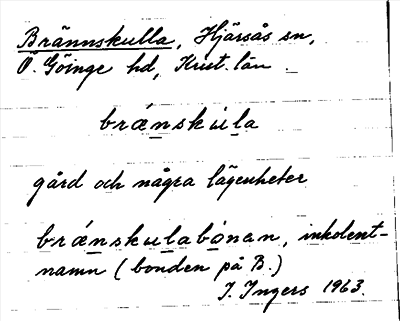 Brännskulla, Hjärsås sn,
Ö. Göinge hd, Krist. län
bránskula
gård och några lägenheter
bránskulabónan, inkolent-
namn (bonden på B.)
I. Ingers 1963.